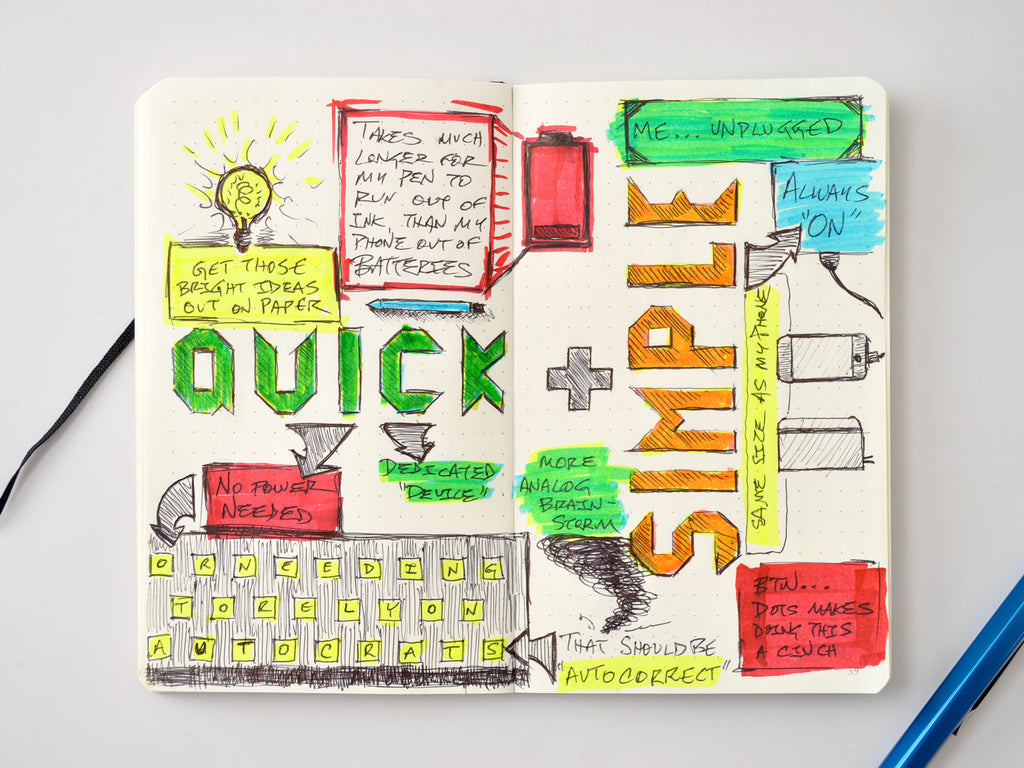 GET THOSE
BRIGHT IDEAS
OUT ON PAPER
TAKES MUCH
LONGER FOR
MY PEN TO
RUN OUT OF
INK, THAN MY
PHONE OUT OF
BATTERIES
QUICK
NO POWER
NEEDED
DEDICATED
"DEVICE"
OR NEEDING
TO RELY ON
AUTOCRATS
+
SIMPLE
ME... UNPLUGGED
ALWAYS
"ON"
SAME SIZE AS MY PHONE
MORE
ANALOG
BRAIN-
STORM
THAT SHOULD BE
"AUTOCORRECT"
BTW...
DOTS MAKES
DOING THIS
A CINCH
39